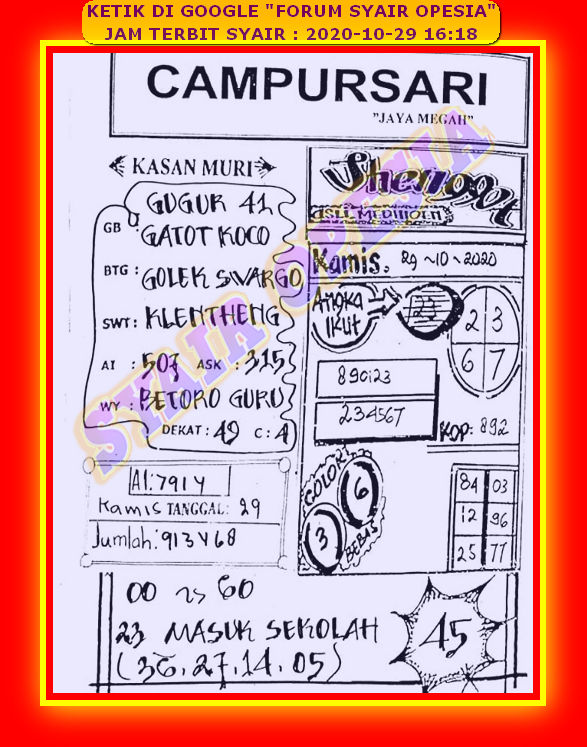 KETIK DI GOOGLE "FORUM SYAIR OPESIA"
JAM TERBIT SYAIR : 2020-10-29 16:18
CAMPURSARI
"JAYA MEGAH"
KASAN MURI
GUGUR 41
GB : GATOT KOCO
BTG : GOLEK SWARGO
SWT : KLENTHENG
AI : 507 ASK : 315
WY : BETORO GURU
DEKAT : 49 C : 4
AI: 7914
Kamis TANGGAL: 29
Jumlah: 913468
ASLI
Kamis. 29~10~2020
Angka IKUT
23
2 3
6 7
890123
234567
KOP: 892
COLOK
6
3
BEBAS
84 03
12 96
25 77
00 ~> 60
23 MASUK SEKOLAH
(36.27.14.05)
45
SYAIR OPESIA